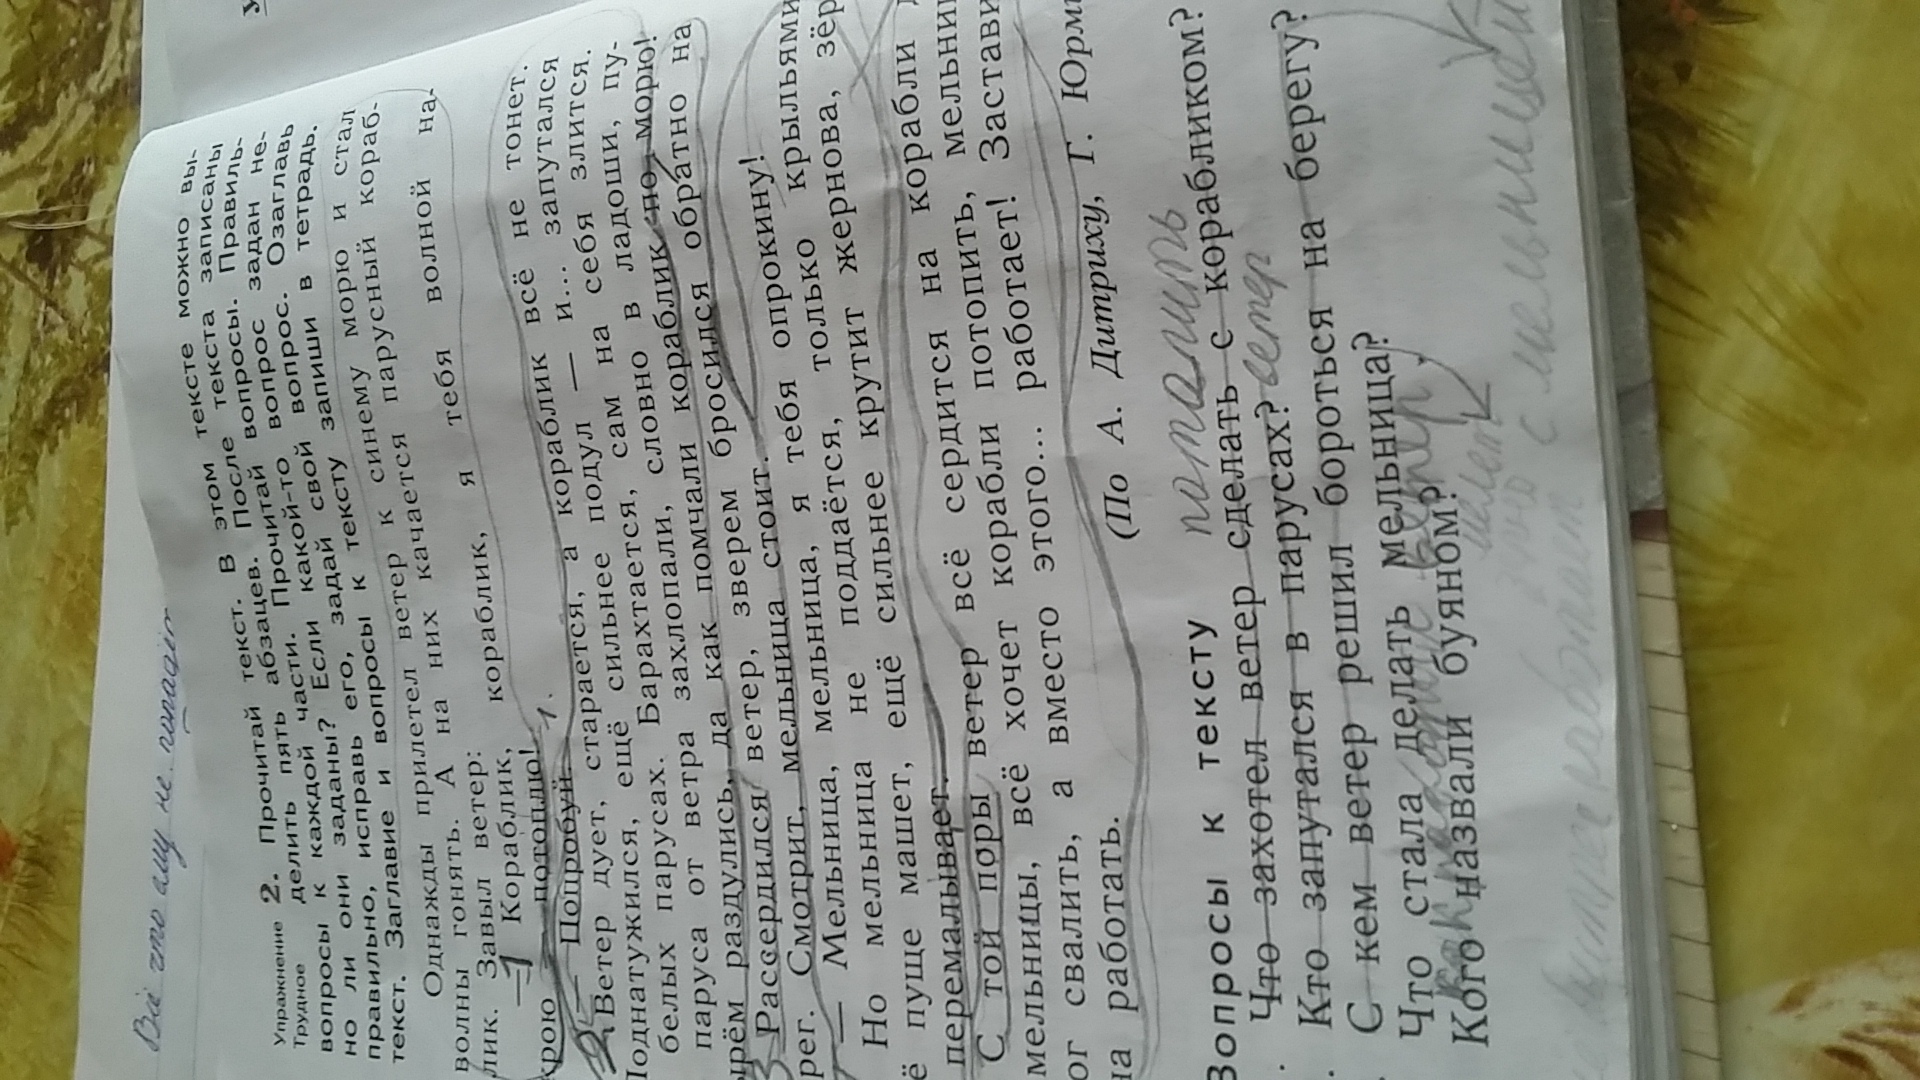 Упражнение 2. Прочитай текст. В этом тексте можно вы-
Трудное делить пять абзацев. После текста записаны
вопросы к каждой части. Прочитай вопросы. Правиль-
но ли они заданы? Если какой-то вопрос задан не-
правильно, исправь его, задай свой вопрос. Озаглавь
текст. Заглавие и вопросы к тексту запиши в тетрадь.
Однажды прилетел ветер к синему морю и стал
волны гонять. А на них качается парусный кораб-
лик. Завыл ветер:
— Кораблик, кораблик, я тебя волной на-
крою — потоплю!
— Попробуй.
2 Ветер дует, старается, а кораблик всё не тонет.
Поднатужился, ещё сильнее подул — и... запутался
белых парусах. Барахтается, сам на себя злится.
паруса от ветра захлопали, словно в ладоши, пу-
ырём раздулись, да как помчали кораблик по морю!
3 Рассердился ветер, зверем бросился обратно на
рег. Смотрит, мельница стоит.
— Мельница, мельница, я тебя опрокину!
Но мельница не поддаётся, только крыльями
ё пуще машет, ещё сильнее крутит жернова, зёр
перемалывает.
С той поры ветер всё сердится на корабли
мельницы, всё хочет корабли потопить, мельни
ог свалить, а вместо этого... работает! Застави
на работать.
(По А. Дитриху, Г. Юрм
потопить
Вопросы к тексту
Что захотел ветер сделать с корабликом?
Кто запутался в парусах? ветер
С кем ветер решил бороться на берегу?
Что стала делать мельница?
Кого назвали буяном?